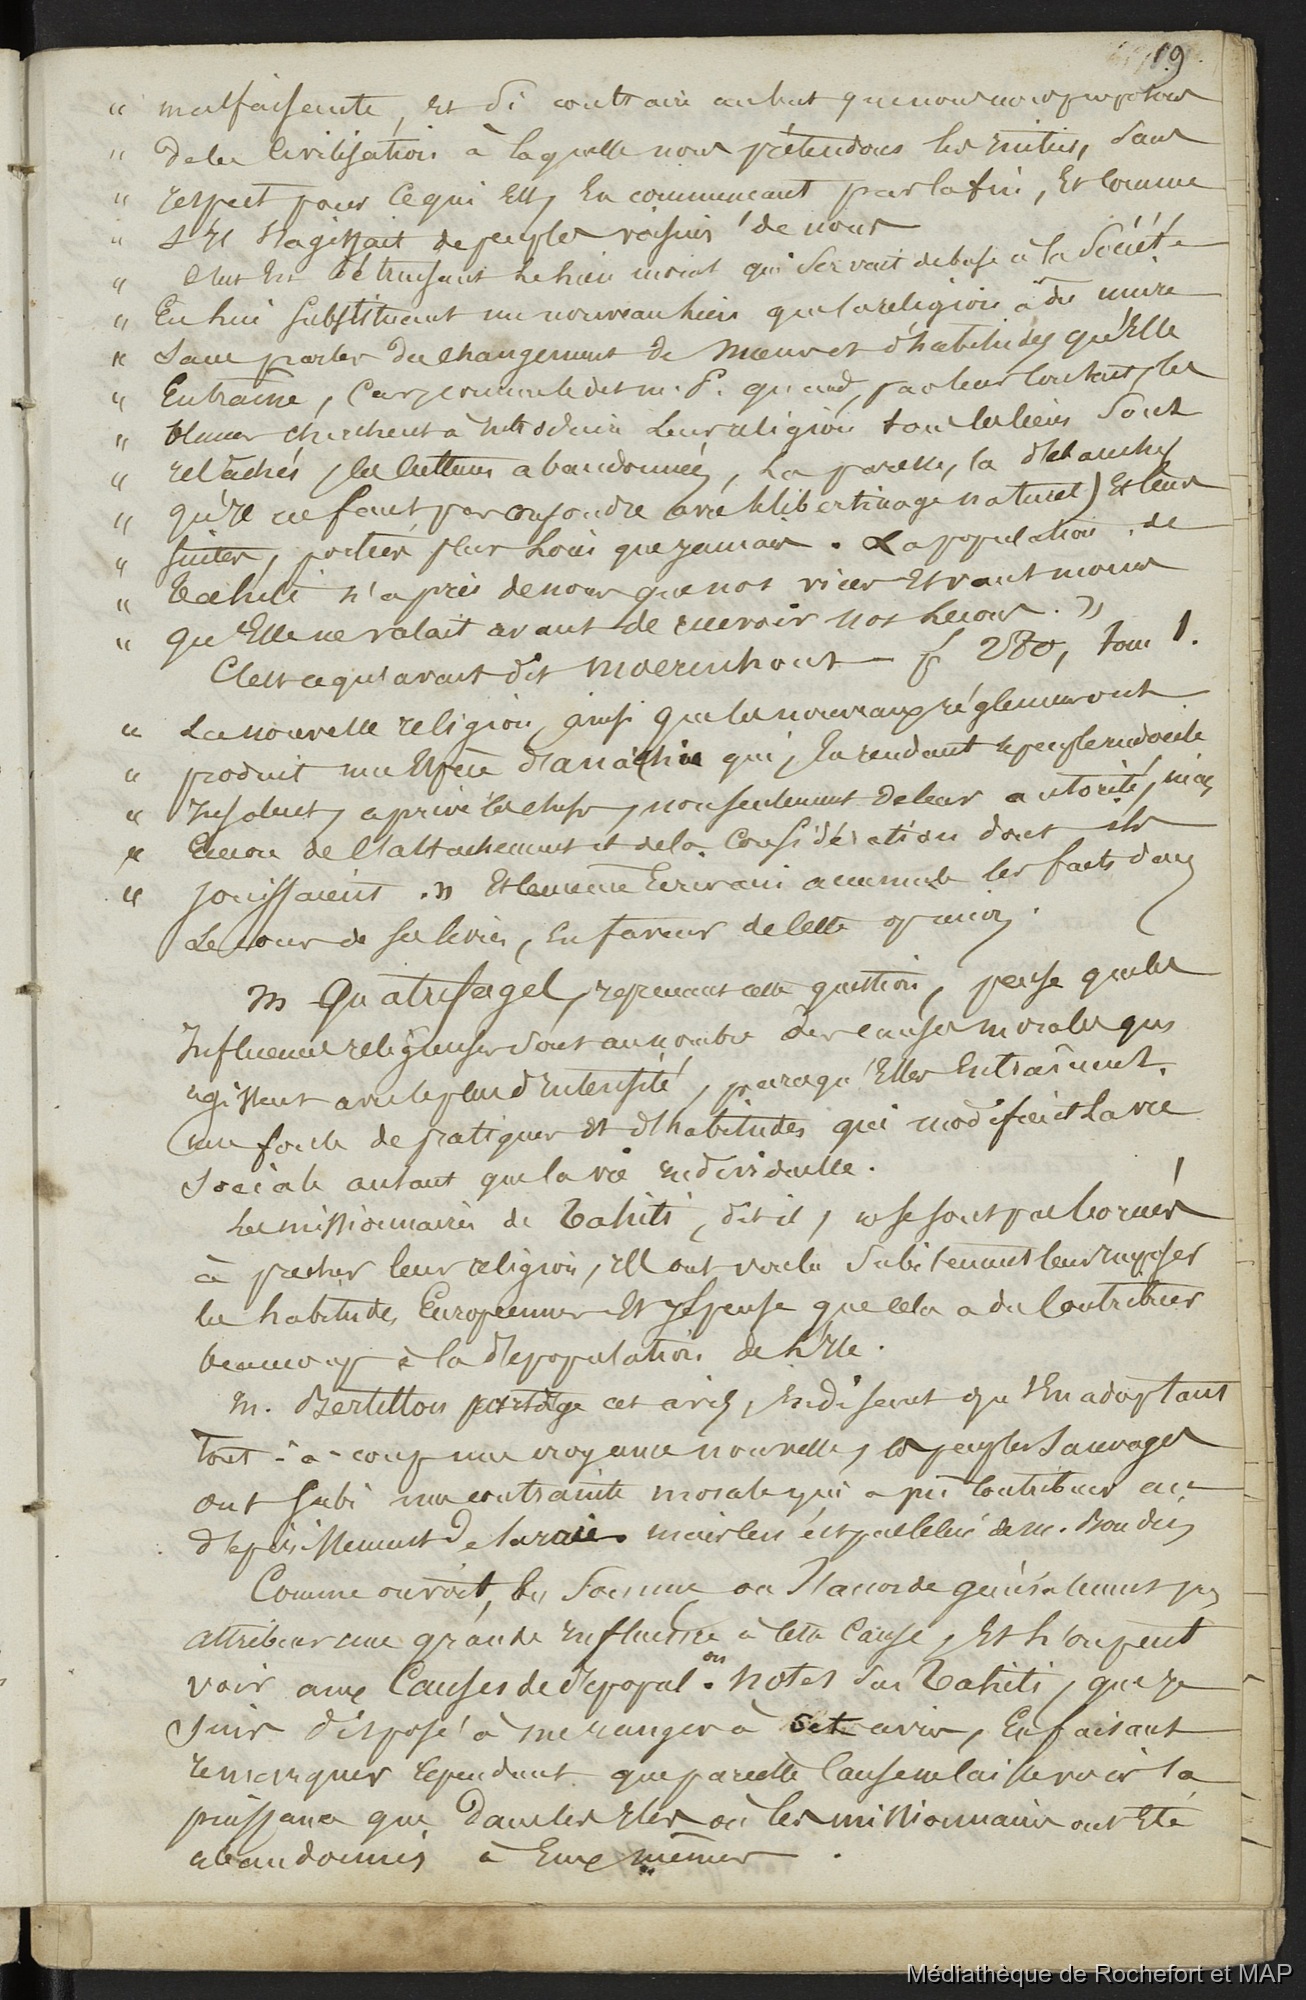 19.
" malfaisante, et si contraire au but que nous nous proposons
" de la civilisation à laquelle nous prétendons les initier, sans
" respect pour ce qui est, en commençant par la fin, et comme
" s'il s'agissait de peuples voisins de nous
" C'est en détruisant le lien moral qui servait de base à la société
" En lui substituant un nouveau lien que la religion a du nuire
" sans parler du changement de mœurs et d'habitudes qu'elle
" Entraine, Car, comme le dit m. P. quand, par leur contact, les
" blancs cherchent à introduire leur religion tous les liens sont
" relâchés, les cultures abandonnées, la paresse, la débauche
" qu'il ne faut pas confondre avec le libertinage naturel) et leurs
" suites, portées plus loin que jamais. La population de
" Tahiti n'a pris de nous que nos vices et vaut moins
" qu'Elle ne valait avant de recevoir nos leçons. »
C'est ce qu'avait dit Moerenhout — p 280, tom 1.
" La nouvelle religion, ainsi que les nouveaux réglemens ont
" produit une espèce d'anarchie qui, en rendant le peuple indocile
" Insolent, a privé les chefs, non seulement de leur autorité, mais
" Encore de l'attachement et de la considération dont ils
" jouissaient. » Et le même Ecrivain accumule les faits dans
le cours de ses livres, en faveur de cette opinion.
M Quatrefages, reprenant cette question, pense que les
Influences religieuses sont au nombre des causes morales qui
agissent avec le plus d'intensité, parcequ'Elles Entraînent
une foule de pratiques et d'habitudes qui modifient la vie
sociale autant que la vie individuelle.
Les missionnaires de Tahiti, dit-il, ne se sont pas bornés
à prêcher leur religion, ils ont voulu subitement leur imposer
les habitudes Européennes et je pense que cela a du contribuer
beaucoup à la dépopulation de l'île.
M. Bertillon partage cet avis, en disant qu'en adoptant
tout-à-coup une croyance nouvelle, les peuples sauvages
ont subi une contrainte morale qui a pu contribuer au
dépérissement de la race. mais ce n'est pas celui de m. Boudin
Comme on voit, en somme on s'accorde généralement pr
attribuer une grande influence à cette cause, et l'on peut
voir aux Causes de dépopulon. notes sur Tahiti, que je
suis disposé à me ranger à cet avis, en faisant
remarquer cependant que pareille cause ne laisse voir sa
puissance que dans les Iles où les missionnaires ont été
abandonnés à Eux mêmes.
Médiathèque de Rochefort et MAP